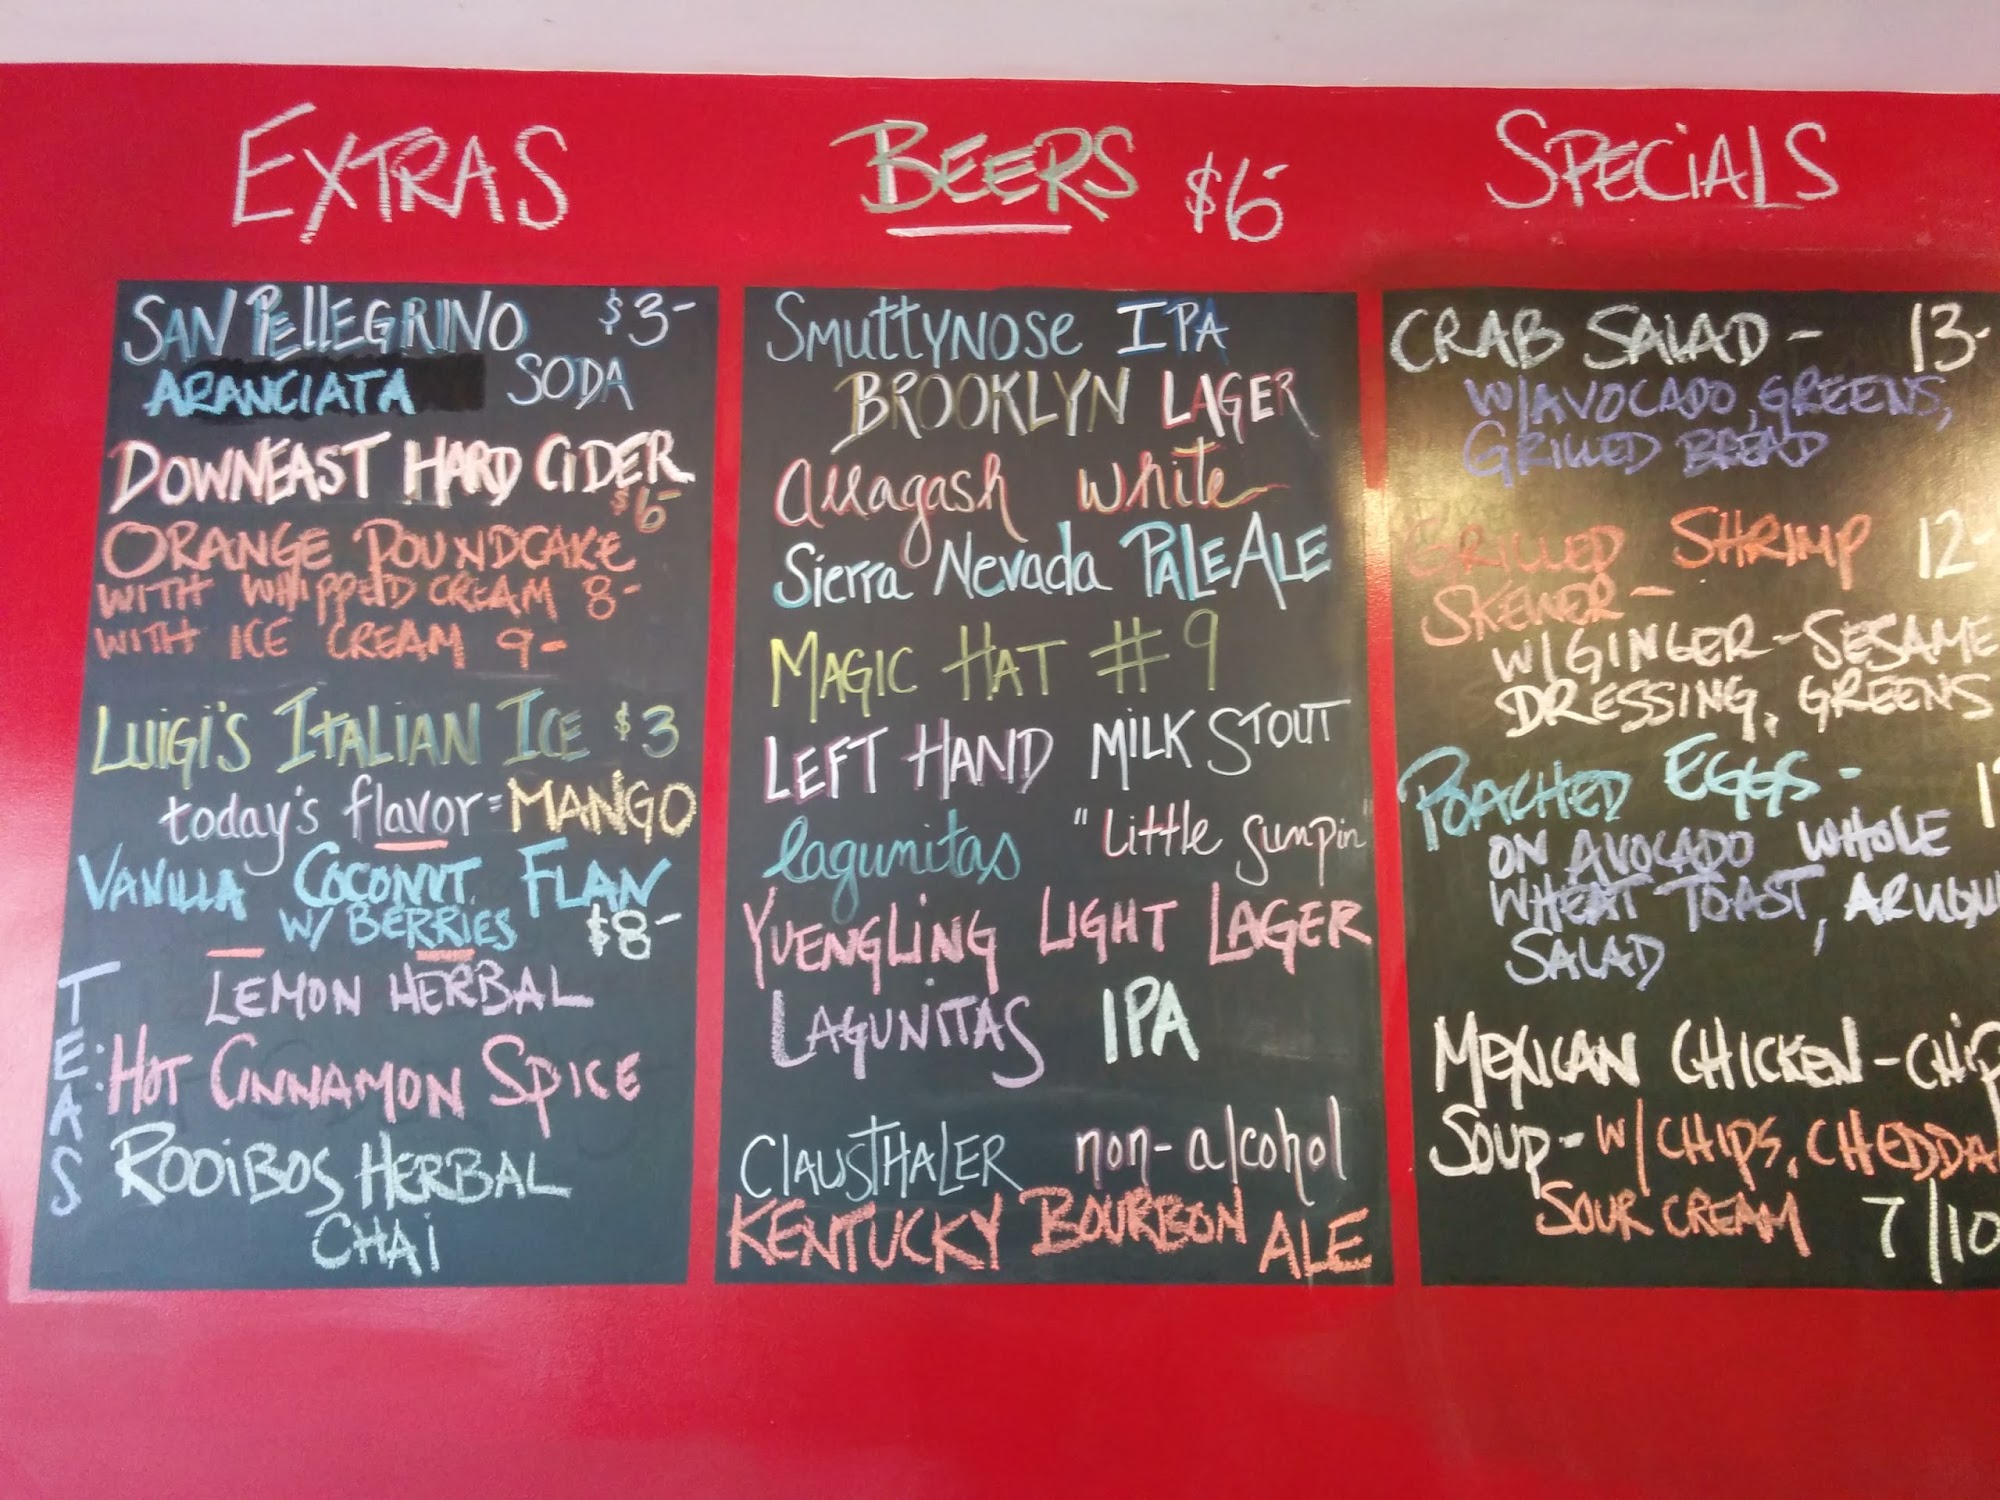 EXTRAS
SAN PELLEGRINO $3-
ARANCIATA SODA
DOWNEAST HARD CIDER
$6-
ORANGE POUNDCAKE
WITH WHIPPED CREAM 8-
WITH ICE CREAM 9-
LUIGI'S ITALIAN ICE $3
today's flavor = MANGO
VANILLA COCONUT FLAN
W/ BERRIES $8-
TEAS:
LEMON HERBAL
HOT CINNAMON SPICE
ROOIBOS HERBAL
CHAI
BEERS $6-
SMUTTYNOSE IPA
BROOKLYN LAGER
allagash white
Sierra Nevada PALE ALE
MAGIC HAT #9
LEFT HAND MILK STOUT
lagunitas "Little Sumpin
YUENGLING LIGHT LAGER
LAGUNITAS IPA
CLAUSTHALER non-alcohol
KENTUCKY BOURBON ALE
SPECIALS
CRAB SALAD - 13-
W/AVOCADO, GREENS,
GRILLED BREAD
GRILLED SHRIMP 12-
SKEWER -
W/GINGER-SESAME
DRESSING, GREENS
POACHED EGGS -
ON AVOCADO WHOLE
WHEAT TOAST,
SALAD
MEXICAN CHICKEN - CHIP
SOUP - W/CHIPS, CHEDDA
SOUR CREAM 7/10